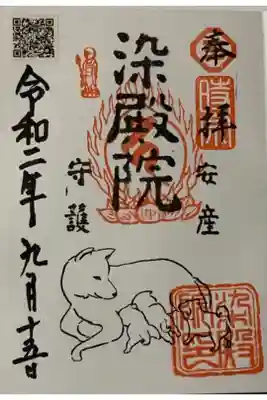 奉拝
安産
染殿院
守護
令和二年九月十五日
染殿
院印